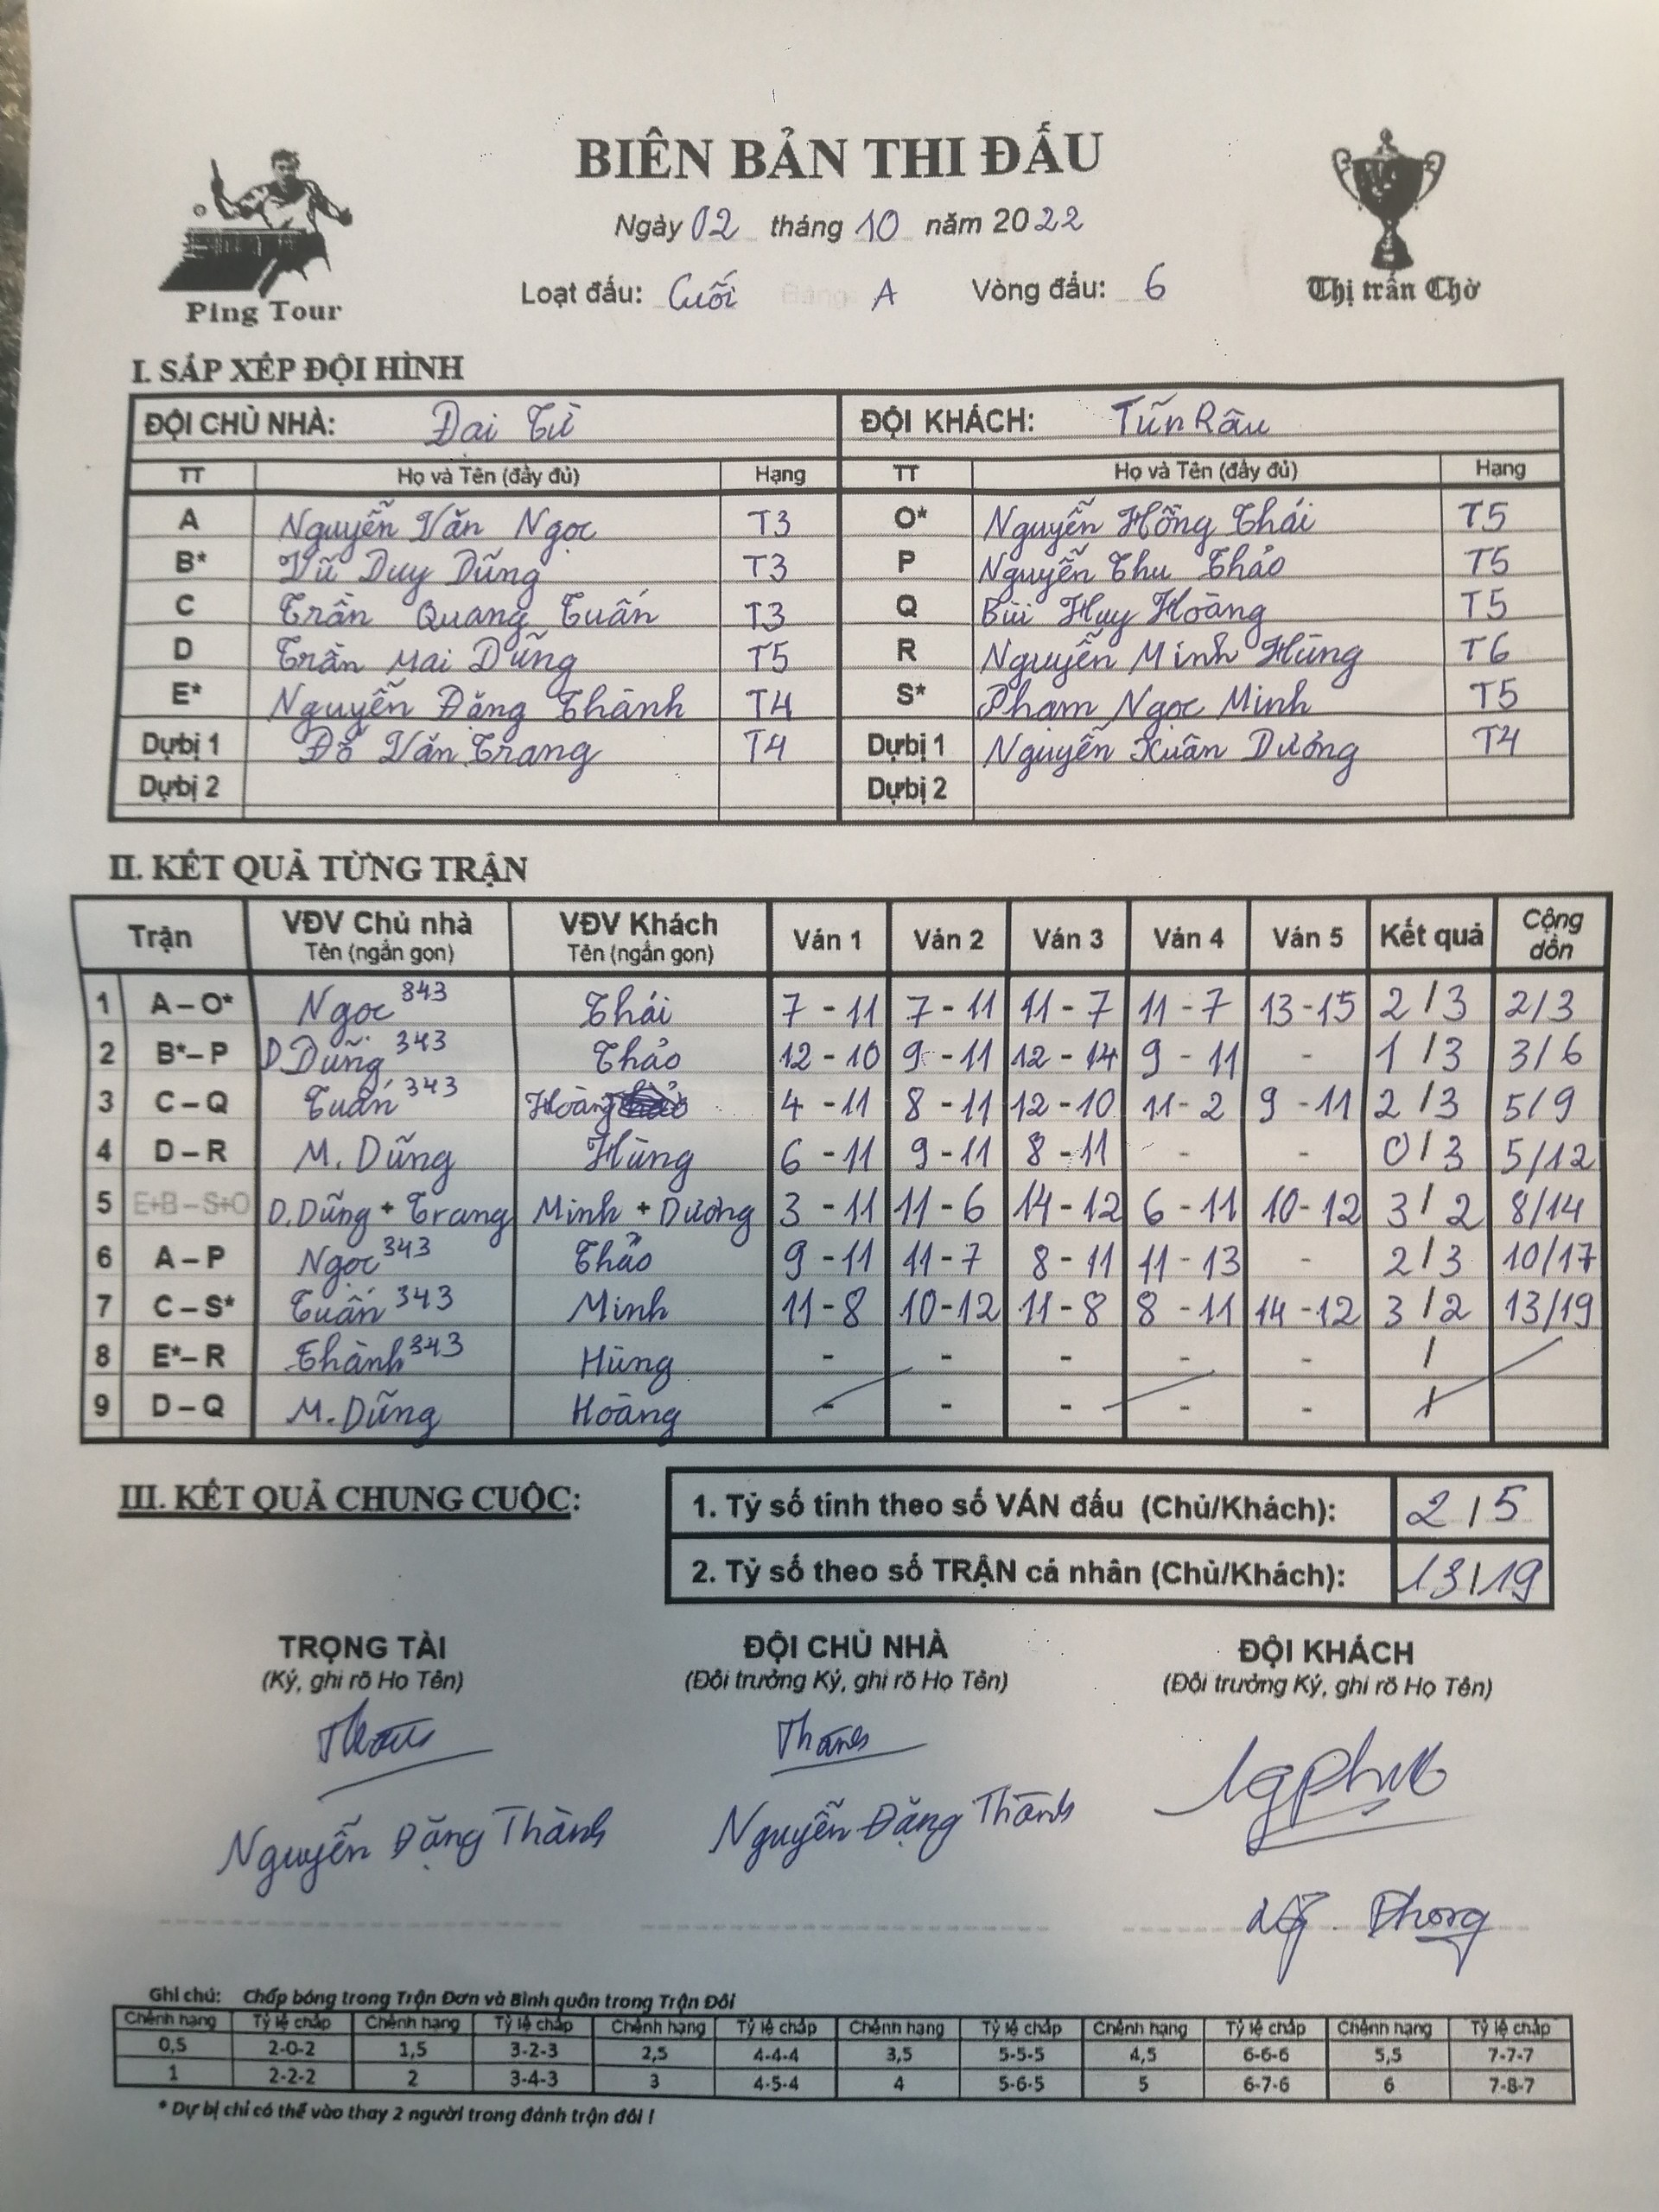 BIÊN BẢN THI ĐẤU
Ngày 02 tháng 10 năm 2022
Loạt đấu: Cuối Bảng A Vòng đấu: 6
Ping Tour
Thị trấn Chờ
I. SẮP XẾP ĐỘI HÌNH
ĐỘI CHỦ NHÀ: Đại Từ ĐỘI KHÁCH: Tín Râu
TT Họ và Tên (đầy đủ) Hạng TT Họ và Tên (đầy đủ) Hạng
A Nguyễn Văn Ngọc T3 O* Nguyễn Hồng Thái T5
B* Vũ Duy Dũng T3 P Nguyễn Thu Thảo T5
C Trần Quang Tuấn T3 Q Bùi Huy Hoàng T5
D Trần Mai Dũng T5 R Nguyễn Minh Hùng T6
E* Nguyễn Đăng Thành T4 S* Phạm Ngọc Minh T5
Dự bị 1 Đỗ Văn Trang T4 Dự bị 1 Nguyễn Xuân Dương T4
Dự bị 2 Dự bị 2
II. KẾT QUẢ TỪNG TRẬN
Trận VĐV Chủ nhà VĐV Khách Ván 1 Ván 2 Ván 3 Ván 4 Ván 5 Kết quả Cộng dồn
Tên (ngắn gọn) Tên (ngắn gọn)
1 A – O* Ngọc 343 Thái 7 - 11 7 - 11 11 - 7 11 - 7 13 - 15 2 / 3 2/3
2 B* – P D.Dũng 343 Thảo 12 - 10 9 - 11 12 - 14 9 - 11 - 1 / 3 3/6
3 C – Q Tuấn 343 Hoàng 4 - 11 8 - 11 12 - 10 11 - 2 9 - 11 2 / 3 5/9
4 D – R M. Dũng Hùng 6 - 11 9 - 11 8 - 11 - - 0 / 3 5/12
5 E+B – S+O D.Dũng + Trang Minh + Dương 3 - 11 11 - 6 14 - 12 6 - 11 10 - 12 3 / 2 8/14
6 A – P Ngọc 343 Thảo 9 - 11 11 - 7 8 - 11 11 - 13 - 2 / 3 10/17
7 C – S* Tuấn 343 Minh 11 - 8 10 - 12 11 - 8 8 - 11 14 - 12 3 / 2 13/19
8 E* – R Thành 343 Hùng - - - - - /
9 D – Q M. Dũng Hoàng - - - - - /
III. KẾT QUẢ CHUNG CUỘC:
1. Tỷ số tính theo số VÁN đấu (Chủ/Khách): 2 / 5
2. Tỷ số theo số TRẬN cá nhân (Chủ/Khách): 13 / 19
TRỌNG TÀI ĐỘI CHỦ NHÀ ĐỘI KHÁCH
(Ký, ghi rõ Họ Tên) (Đội trưởng Ký, ghi rõ Họ Tên) (Đội trưởng Ký, ghi rõ Họ Tên)
Thành
Nguyễn Đặng Thành Nguyễn Đặng Thành
Phong
Ghi chú: Chấp bóng trong Trận Đơn và Bình quân trong Trận Đôi
Chênh hạng Tỷ lệ chấp Chênh hạng Tỷ lệ chấp Chênh hạng Tỷ lệ chấp Chênh hạng Tỷ lệ chấp Chênh hạng Tỷ lệ chấp Chênh hạng Tỷ lệ chấp
0,5 2-0-2 1,5 3-2-3 2,5 4-4-4 3,5 5-5-5 4,5 6-6-6 5,5 7-7-7
1 2-2-2 2 3-4-3 3 4-5-4 4 5-6-5 5 6-7-6 6 7-8-7
* Dự bị chỉ có thể vào thay 2 người trong đánh trận đôi !